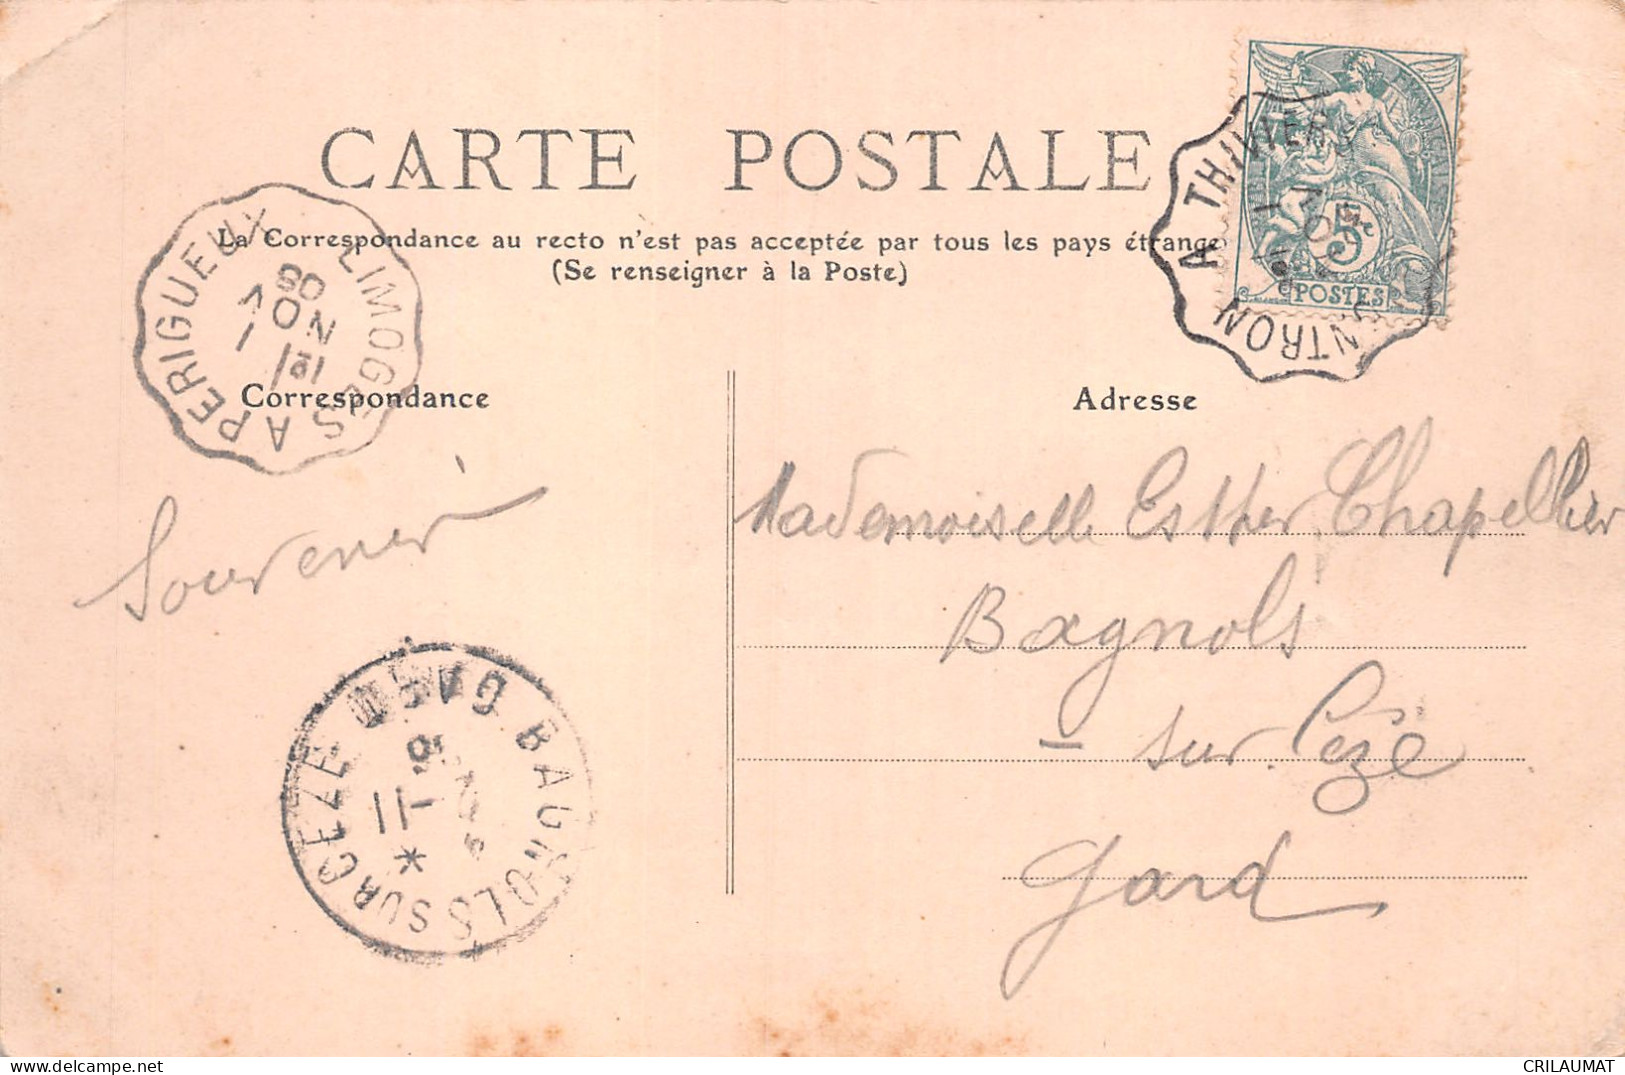 CARTE POSTALE
La Correspondance au recto n'est pas acceptée par tous les pays étrange
(Se renseigner à la Poste)
LIMOGES A PERIGUEUX
1
NOV
08
NTRON A THIVIER
5c
POSTES
Correspondance
Adresse
Souvenir
Mademoiselle Esther Chapellier
Bagnols
- sur. Cèze
Gard
BAGNOLS SUR CEZE
GARD
11
*
CRILAUMAT